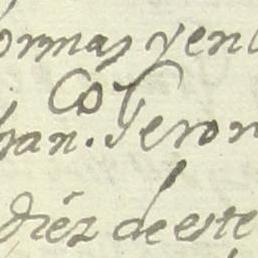 ormas y en
Co
han. Geron
diez de este